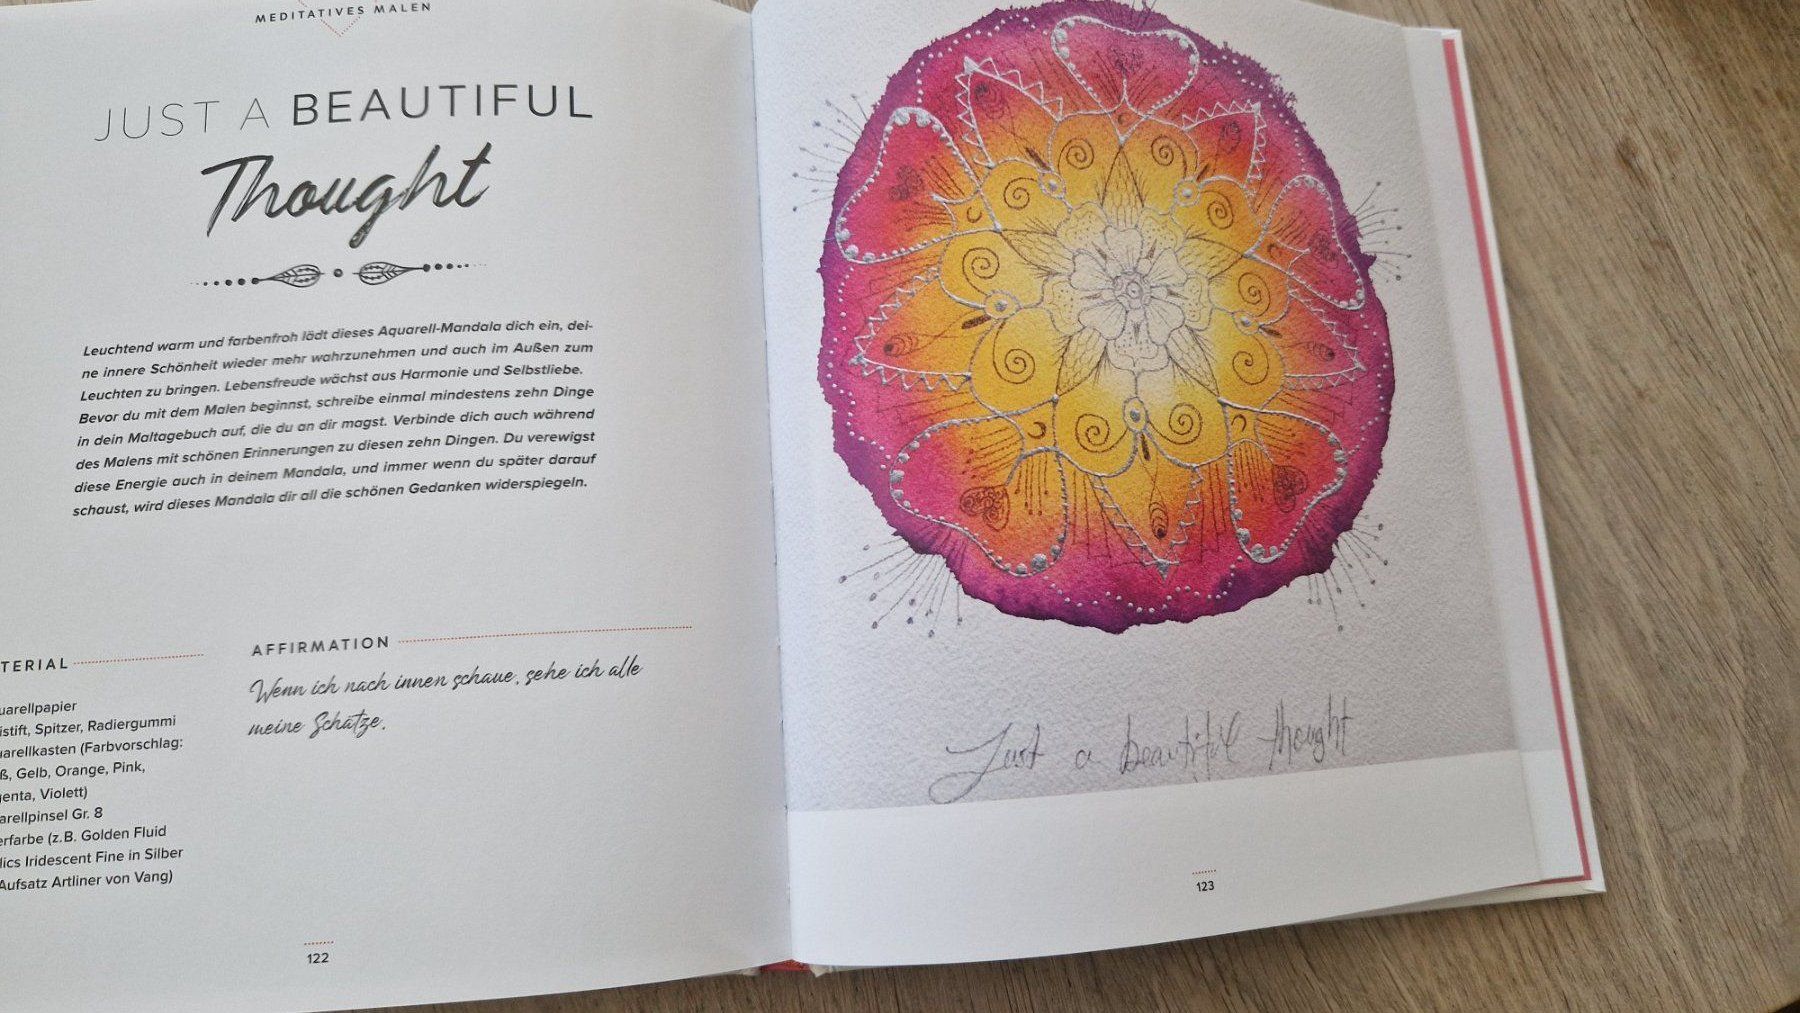 MEDITATIVES MALEN
JUST A BEAUTIFUL
Thought
Leuchtend warm und farbenfroh lädt dieses Aquarell-Mandala dich ein, dei-
ne innere Schönheit wieder mehr wahrzunehmen und auch im Außen zum
Leuchten zu bringen. Lebensfreude wächst aus Harmonie und Selbstliebe.
Bevor du mit dem Malen beginnst, schreibe einmal mindestens zehn Dinge
in dein Maltagebuch auf, die du an dir magst. Verbinde dich auch während
des Malens mit schönen Erinnerungen zu diesen zehn Dingen. Du verewigst
diese Energie auch in deinem Mandala, und immer wenn du später darauf
schaust, wird dieses Mandala dir all die schönen Gedanken widerspiegeln.
TERIAL
uarellpapier
istift, Spitzer, Radiergummi
uarellkasten (Farbvorschlag:
ß, Gelb, Orange, Pink,
genta, Violett)
arellpinsel Gr. 8
erfarbe (z.B. Golden Fluid
lics Iridescent Fine in Silber
Aufsatz Artliner von Vang)
AFFIRMATION
Wenn ich nach innen schaue, sehe ich alle
meine Schätze.
122
Just a beautiful thought
123